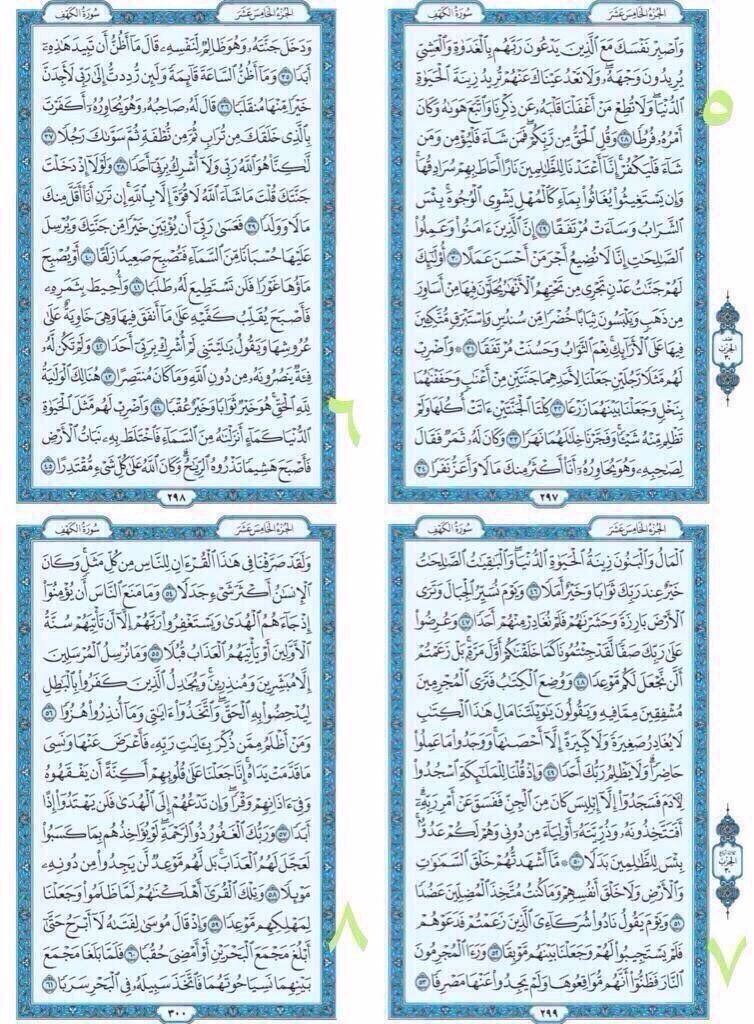 الجزء الخامس عشر سورة الكهف
وَاصْبِرْ نَفْسَكَ مَعَ الَّذِينَ يَدْعُونَ رَبَّهُم بِالْغَدَوٰةِ وَالْعَشِيِّ
يُرِيدُونَ وَجْهَهُۥ وَلَا تَعْدُ عَيْنَاكَ عَنْهُمْ تُرِيدُ زِينَةَ الْحَيَوٰةِ
الدُّنْيَا وَلَا تُطِعْ مَنْ أَغْفَلْنَا قَلْبَهُۥ عَن ذِكْرِنَا وَاتَّبَعَ هَوَىٰهُ وَكَانَ
أَمْرُهُۥ فُرُطًا ٢٨ وَقُلِ الْحَقُّ مِن رَّبِّكُمْ فَمَن شَآءَ فَلْيُؤْمِن وَمَن
شَآءَ فَلْيَكْفُرْ إِنَّآ أَعْتَدْنَا لِلظَّٰلِمِينَ نَارًا أَحَاطَ بِهِمْ سُرَادِقُهَا
وَإِن يَسْتَغِيثُوا۟ يُغَاثُوا۟ بِمَآءٍ كَالْمُهْلِ يَشْوِى الْوُجُوهَ بِئْسَ
الشَّرَابُ وَسَآءَتْ مُرْتَفَقًا ٢٩ إِنَّ الَّذِينَ ءَامَنُوا۟ وَعَمِلُوا۟
الصَّٰلِحَٰتِ إِنَّا لَا نُضِيعُ أَجْرَ مَنْ أَحْسَنَ عَمَلًا ٣٠ أُو۟لَٰٓئِكَ
لَهُمْ جَنَّٰتُ عَدْنٍ تَجْرِى مِن تَحْتِهِمُ الْأَنْهَٰرُ يُحَلَّوْنَ فِيهَا مِنْ أَسَاوِرَ
مِن ذَهَبٍ وَيَلْبَسُونَ ثِيَابًا خُضْرًا مِّن سُندُسٍ وَإِسْتَبْرَقٍ مُّتَّكِـِٔينَ
فِيهَا عَلَى الْأَرَآئِكِ نِعْمَ الثَّوَابُ وَحَسُنَتْ مُرْتَفَقًا ٣١ وَاضْرِبْ
لَهُم مَّثَلًا رَّجُلَيْنِ جَعَلْنَا لِأَحَدِهِمَا جَنَّتَيْنِ مِنْ أَعْنَٰبٍ وَحَفَفْنَٰهُمَا
بِنَخْلٍ وَجَعَلْنَا بَيْنَهُمَا زَرْعًا ٣٢ كِلْتَا الْجَنَّتَيْنِ ءَاتَتْ أُكُلَهَا وَلَمْ
تَظْلِم مِّنْهُ شَيْـًٔا وَفَجَّرْنَا خِلَٰلَهُمَا نَهَرًا ٣٣ وَكَانَ لَهُۥ ثَمَرٌ فَقَالَ
لِصَٰحِبِهِۦ وَهُوَ يُحَاوِرُهُۥٓ أَنَا۠ أَكْثَرُ مِنكَ مَالًا وَأَعَزُّ نَفَرًا ٣٤
٢٩٧
٥
نصف
الحزب
٣٠
الجزء الخامس عشر سورة الكهف
وَدَخَلَ جَنَّتَهُۥ وَهُوَ ظَالِمٌ لِّنَفْسِهِۦ قَالَ مَآ أَظُنُّ أَن تَبِيدَ هَٰذِهِۦٓ
أَبَدًا ٣٥ وَمَآ أَظُنُّ السَّاعَةَ قَآئِمَةً وَلَئِن رُّدِدتُّ إِلَىٰ رَبِّى لَأَجِدَنَّ
خَيْرًا مِّنْهَا مُنقَلَبًا ٣٦ قَالَ لَهُۥ صَاحِبُهُۥ وَهُوَ يُحَاوِرُهُۥٓ أَكَفَرْتَ
بِالَّذِى خَلَقَكَ مِن تُرَابٍ ثُمَّ مِن نُّطْفَةٍ ثُمَّ سَوَّىٰكَ رَجُلًا ٣٧
لَّٰكِنَّا۠ هُوَ اللَّهُ رَبِّى وَلَآ أُشْرِكُ بِرَبِّىٓ أَحَدًا ٣٨ وَلَوْلَآ إِذْ دَخَلْتَ
جَنَّتَكَ قُلْتَ مَا شَآءَ اللَّهُ لَا قُوَّةَ إِلَّا بِاللَّهِ إِن تَرَنِ أَنَا۠ أَقَلَّ مِنكَ
مَالًا وَوَلَدًا ٣٩ فَعَسَىٰ رَبِّىٓ أَن يُؤْتِيَنِ خَيْرًا مِّن جَنَّتِكَ وَيُرْسِلَ
عَلَيْهَا حُسْبَانًا مِّنَ السَّمَآءِ فَتُصْبِحَ صَعِيدًا زَلَقًا ٤٠ أَوْ يُصْبِحَ
مَآؤُهَا غَوْرًا فَلَن تَسْتَطِيعَ لَهُۥ طَلَبًا ٤١ وَأُحِيطَ بِثَمَرِهِۦ
فَأَصْبَحَ يُقَلِّبُ كَفَّيْهِ عَلَىٰ مَآ أَنفَقَ فِيهَا وَهِىَ خَاوِيَةٌ عَلَىٰ
عُرُوشِهَا وَيَقُولُ يَٰلَيْتَنِى لَمْ أُشْرِكْ بِرَبِّىٓ أَحَدًا ٤٢ وَلَمْ تَكُن لَّهُۥ
فِئَةٌ يَنصُرُونَهُۥ مِن دُونِ اللَّهِ وَمَا كَانَ مُنتَصِرًا ٤٣ هُنَالِكَ الْوَلَٰيَةُ
لِلَّهِ الْحَقِّ هُوَ خَيْرٌ ثَوَابًا وَخَيْرٌ عُقْبًا ٤٤ وَاضْرِبْ لَهُم مَّثَلَ الْحَيَوٰةِ
الدُّنْيَا كَمَآءٍ أَنزَلْنَٰهُ مِنَ السَّمَآءِ فَاخْتَلَطَ بِهِۦ نَبَاتُ الْأَرْضِ
فَأَصْبَحَ هَشِيمًا تَذْرُوهُ الرِّيَٰحُ وَكَانَ اللَّهُ عَلَىٰ كُلِّ شَىْءٍ مُّقْتَدِرًا ٤٥
٢٩٨
٦
الجزء الخامس عشر سورة الكهف
الْمَالُ وَالْبَنُونَ زِينَةُ الْحَيَوٰةِ الدُّنْيَا وَالْبَٰقِيَٰتُ الصَّٰلِحَٰتُ
خَيْرٌ عِندَ رَبِّكَ ثَوَابًا وَخَيْرٌ أَمَلًا ٤٦ وَيَوْمَ نُسَيِّرُ الْجِبَالَ وَتَرَى
الْأَرْضَ بَارِزَةً وَحَشَرْنَٰهُمْ فَلَمْ نُغَادِرْ مِنْهُمْ أَحَدًا ٤٧ وَعُرِضُوا۟
عَلَىٰ رَبِّكَ صَفًّا لَّقَدْ جِئْتُمُونَا كَمَا خَلَقْنَٰكُمْ أَوَّلَ مَرَّةٍۭ بَلْ زَعَمْتُمْ
أَلَّن نَّجْعَلَ لَكُم مَّوْعِدًا ٤٨ وَوُضِعَ الْكِتَٰبُ فَتَرَى الْمُجْرِمِينَ
مُشْفِقِينَ مِمَّا فِيهِ وَيَقُولُونَ يَٰوَيْلَتَنَا مَالِ هَٰذَا الْكِتَٰبِ
لَا يُغَادِرُ صَغِيرَةً وَلَا كَبِيرَةً إِلَّآ أَحْصَىٰهَا وَوَجَدُوا۟ مَا عَمِلُوا۟
حَاضِرًا وَلَا يَظْلِمُ رَبُّكَ أَحَدًا ٤٩ وَإِذْ قُلْنَا لِلْمَلَٰٓئِكَةِ اسْجُدُوا۟
لِـَٔادَمَ فَسَجَدُوٓا۟ إِلَّآ إِبْلِيسَ كَانَ مِنَ الْجِنِّ فَفَسَقَ عَنْ أَمْرِ رَبِّهِۦٓ
أَفَتَتَّخِذُونَهُۥ وَذُرِّيَّتَهُۥٓ أَوْلِيَآءَ مِن دُونِى وَهُمْ لَكُمْ عَدُوٌّۢ
بِئْسَ لِلظَّٰلِمِينَ بَدَلًا ٥٠ مَّآ أَشْهَدتُّهُمْ خَلْقَ السَّمَٰوَٰتِ
وَالْأَرْضِ وَلَا خَلْقَ أَنفُسِهِمْ وَمَا كُنتُ مُتَّخِذَ الْمُضِلِّينَ عَضُدًا
٥١ وَيَوْمَ يَقُولُ نَادُوا۟ شُرَكَآءِىَ الَّذِينَ زَعَمْتُمْ فَدَعَوْهُمْ
فَلَمْ يَسْتَجِيبُوا۟ لَهُمْ وَجَعَلْنَا بَيْنَهُم مَّوْبِقًا ٥٢ وَرَءَا الْمُجْرِمُونَ
النَّارَ فَظَنُّوٓا۟ أَنَّهُم مُّوَاقِعُوهَا وَلَمْ يَجِدُوا۟ عَنْهَا مَصْرِفًا ٥٣
٢٩٩
٧
ثلاثة أرباع
الحزب
٣٠
الجزء الخامس عشر سورة الكهف
وَلَقَدْ صَرَّفْنَا فِى هَٰذَا الْقُرْءَانِ لِلنَّاسِ مِن كُلِّ مَثَلٍ وَكَانَ
الْإِنسَٰنُ أَكْثَرَ شَىْءٍ جَدَلًا ٥٤ وَمَا مَنَعَ النَّاسَ أَن يُؤْمِنُوٓا۟
إِذْ جَآءَهُمُ الْهُدَىٰ وَيَسْتَغْفِرُوا۟ رَبَّهُمْ إِلَّآ أَن تَأْتِيَهُمْ سُنَّةُ
الْأَوَّلِينَ أَوْ يَأْتِيَهُمُ الْعَذَابُ قُبُلًا ٥٥ وَمَا نُرْسِلُ الْمُرْسَلِينَ
إِلَّا مُبَشِّرِينَ وَمُنذِرِينَ وَيُجَٰدِلُ الَّذِينَ كَفَرُوا۟ بِالْبَٰطِلِ
لِيُدْحِضُوا۟ بِهِ الْحَقَّ وَاتَّخَذُوٓا۟ ءَايَٰتِى وَمَآ أُنذِرُوا۟ هُزُوًا ٥٦
وَمَنْ أَظْلَمُ مِمَّن ذُكِّرَ بِـَٔايَٰتِ رَبِّهِۦ فَأَعْرَضَ عَنْهَا وَنَسِىَ
مَا قَدَّمَتْ يَدَاهُ إِنَّا جَعَلْنَا عَلَىٰ قُلُوبِهِمْ أَكِنَّةً أَن يَفْقَهُوهُ
وَفِىٓ ءَاذَانِهِمْ وَقْرًا وَإِن تَدْعُهُمْ إِلَى الْهُدَىٰ فَلَن يَهْتَدُوٓا۟ إِذًا
أَبَدًا ٥٧ وَرَبُّكَ الْغَفُورُ ذُو الرَّحْمَةِ لَوْ يُؤَاخِذُهُم بِمَا كَسَبُوا۟
لَعَجَّلَ لَهُمُ الْعَذَابَ بَل لَّهُم مَّوْعِدٌ لَّن يَجِدُوا۟ مِن دُونِهِۦ
مَوْئِلًا ٥٨ وَتِلْكَ الْقُرَىٰٓ أَهْلَكْنَٰهُمْ لَمَّا ظَلَمُوا۟ وَجَعَلْنَا
لِمَهْلِكِهِم مَّوْعِدًا ٥٩ وَإِذْ قَالَ مُوسَىٰ لِفَتَىٰهُ لَآ أَبْرَحُ حَتَّىٰٓ
أَبْلُغَ مَجْمَعَ الْبَحْرَيْنِ أَوْ أَمْضِىَ حُقُبًا ٦٠ فَلَمَّا بَلَغَا مَجْمَعَ
بَيْنِهِمَا نَسِيَا حُوتَهُمَا فَاتَّخَذَ سَبِيلَهُۥ فِى الْبَحْرِ سَرَبًا ٦١
٣٠٠
٨